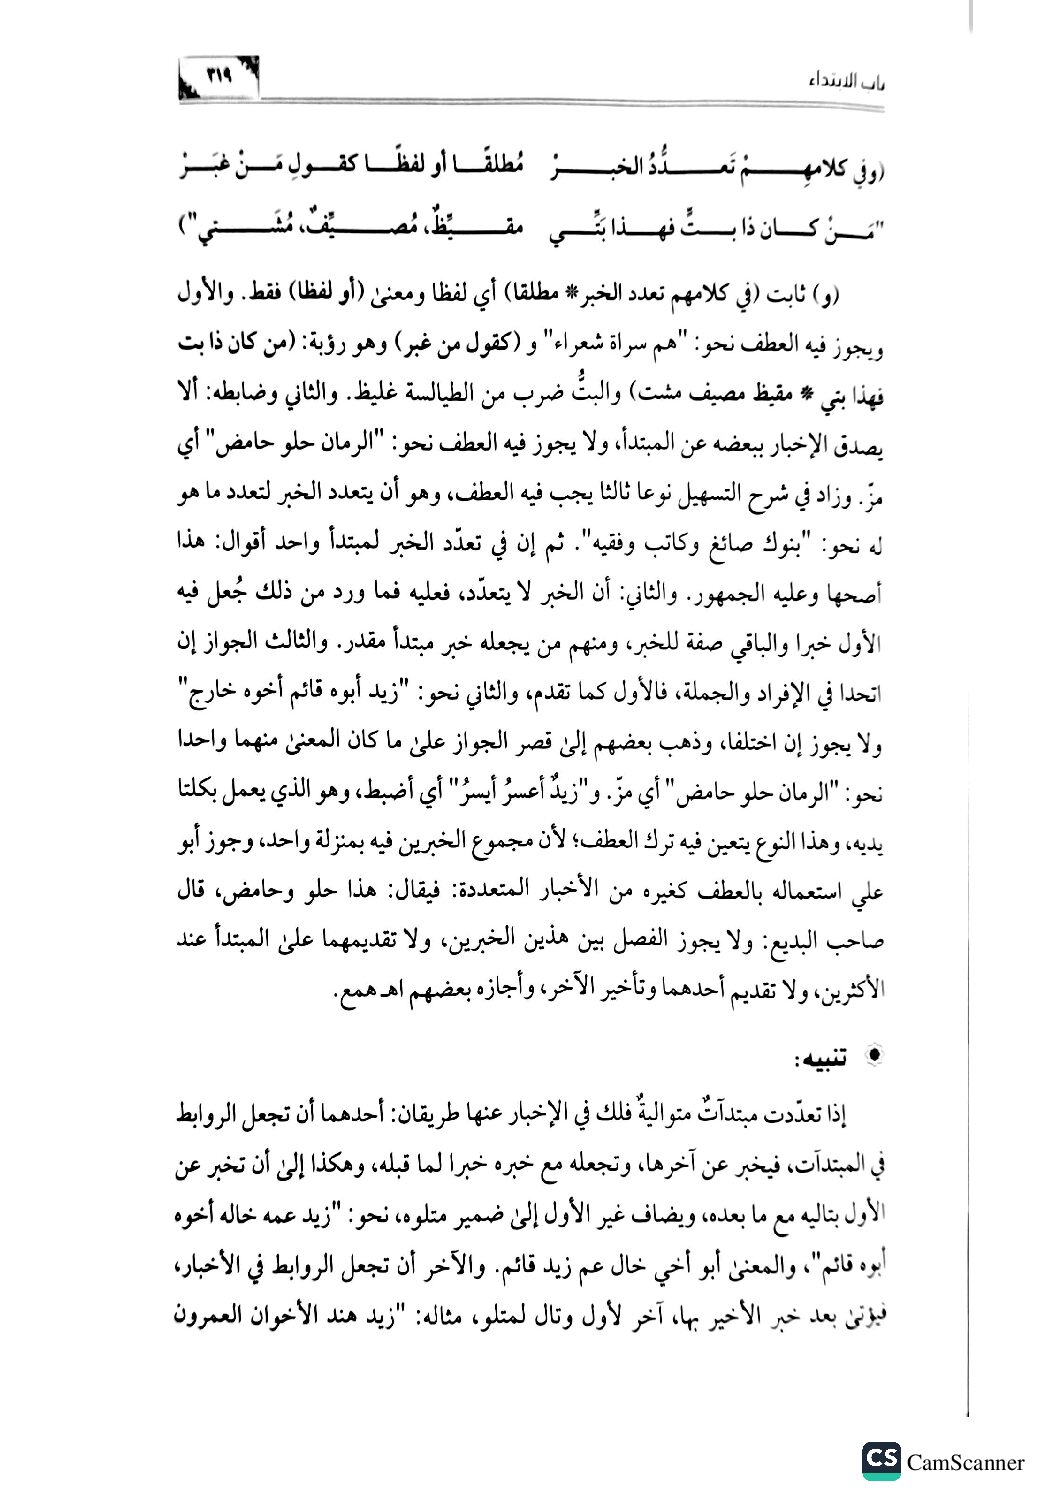 باب الابتداء
٣١٩
(وفي كلامهِمْ تَعدُّدُ الخبرْ مُطلقًا أو لفظًا كقولِ مَنْ غبَرْ
"مَنْ كان ذا بتٍّ فهذا بَتِّي مقيِّظٌ، مُصيِّفٌ، مُشَتي")
(و) ثابت (في كلامهم تعدد الخبر* مطلقا) أي لفظا ومعنىٰ (أو لفظا) فقط. والأول
ويجوز فيه العطف نحو: "هم سراة شعراء" و (كقول من غبر) وهو رؤبة: (من كان ذا بت
فهذا بتي * مقيظ مصيف مشت) والبتُّ ضرب من الطيالسة غليظ. والثاني وضابطه: ألا
يصدق الإخبار ببعضه عن المبتدأ، ولا يجوز فيه العطف نحو: "الرمان حلو حامض" أي
مزّ. وزاد في شرح التسهيل نوعا ثالثا يجب فيه العطف، وهو أن يتعدد الخبر لتعدد ما هو
له نحو: "بنوك صائغ وكاتب وفقيه". ثم إن في تعدّد الخبر لمبتدأ واحد أقوال: هذا
أصحها وعليه الجمهور. والثاني: أن الخبر لا يتعدّد، فعليه فما ورد من ذلك جُعل فيه
الأول خبرا والباقي صفة للخبر، ومنهم من يجعله خبر مبتدأ مقدر. والثالث الجواز إن
اتحدا في الإفراد والجملة، فالأول كما تقدم، والثاني نحو: "زيد أبوه قائم أخوه خارج"
ولا يجوز إن اختلفا، وذهب بعضهم إلىٰ قصر الجواز علىٰ ما كان المعنىٰ منهما واحدا
نحو: "الرمان حلو حامض" أي مزّ. و"زيدٌ أعسرُ أيسرُ" أي أضبط، وهو الذي يعمل بكلتا
يديه، وهذا النوع يتعين فيه ترك العطف؛ لأن مجموع الخبرين فيه بمنزلة واحد، وجوز أبو
علي استعماله بالعطف كغيره من الأخبار المتعددة: فيقال: هذا حلو وحامض، قال
صاحب البديع: ولا يجوز الفصل بين هذين الخبرين، ولا تقديمهما علىٰ المبتدأ عند
الأكثرين، ولا تقديم أحدهما وتأخير الآخر، وأجازه بعضهم اهـ همع.
تنبيه:
إذا تعدّدت مبتدآتٌ متواليةٌ فلك في الإخبار عنها طريقان: أحدهما أن تجعل الروابط
في المبتدآت، فيخبر عن آخرها، وتجعله مع خبره خبرا لما قبله، وهكذا إلىٰ أن تخبر عن
الأول بتاليه مع ما بعده، ويضاف غير الأول إلىٰ ضمير متلوه، نحو: "زيد عمه خاله أخوه
أبوه قائم"، والمعنىٰ أبو أخي خال عم زيد قائم. والآخر أن تجعل الروابط في الأخبار،
فيؤتىٰ بعد خبر الأخير بها، آخر لأول وتال لمتلو، مثاله: "زيد هند الأخوان العمرون
CS CamScanner